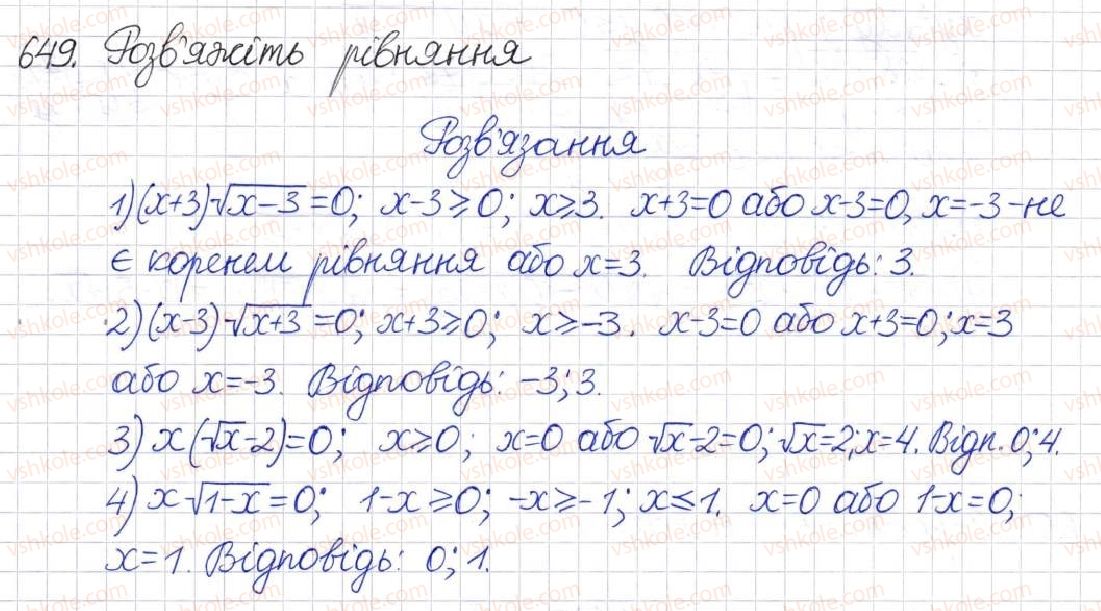 649. Розв'яжіть рівняння
Розв'язання
1) (x+3)√x-3=0; x-3≥0; x≥3. x+3=0 або x-3=0, x=-3 - не
є коренем рівняння або x=3. Відповідь: 3.
2) (x-3)√x+3=0; x+3≥0; x≥-3. x-3=0 або x+3=0; x=3
або x=-3. Відповідь: -3; 3.
3) x(√x-2)=0; x≥0; x=0 або √x-2=0; √x=2; x=4. Відп. 0; 4.
4) x√1-x=0; 1-x≥0; -x≥-1; x≤1. x=0 або 1-x=0;
x=1. Відповідь: 0; 1.